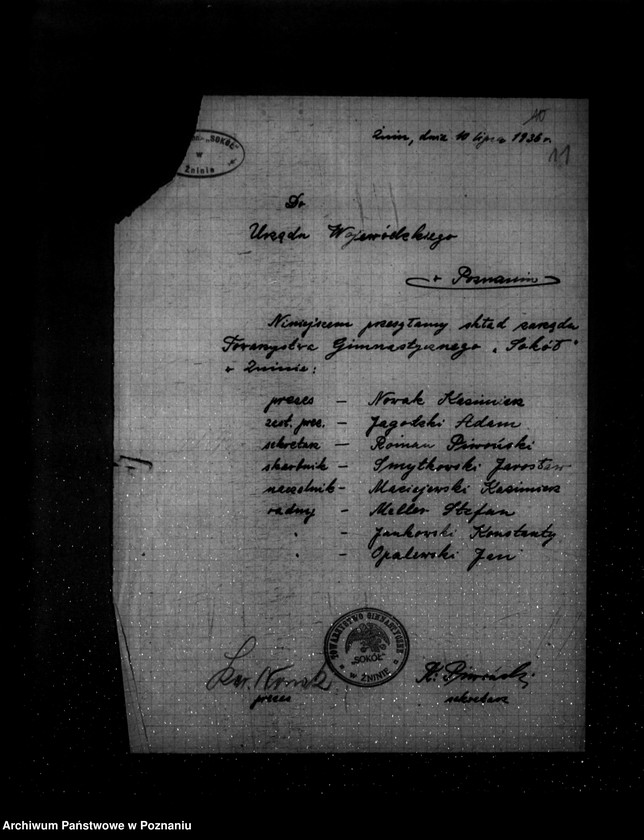 10
Żnin, dnia 10 lipca 1936 r.
11
"SOKÓŁ"
w
Żninie
Do
Urzędu Wojewódzkiego
w Poznaniu
Niniejszem przesyłamy skład zarządu
Towarzystwa Gimnastycznego „Sokół"
w Żninie:
prezes — Nowak Kazimierz
zast. prez. — Jagodzki Adam
sekretarz — Roman Piwoński
skarbnik — Smytkowski Jarosław
naczelnik — Maciejewski Kazimierz
radny — Meller Stefan
" — Jankowski Konstanty
" — Opalewski Jan
TOWARZYSTWO GIMNASTYCZNE
"SOKÓŁ"
w ŻNINIE
Kaz. Nowak
R. Piwoński
prezes
sekretarz
Archiwum Państwowe w Poznaniu